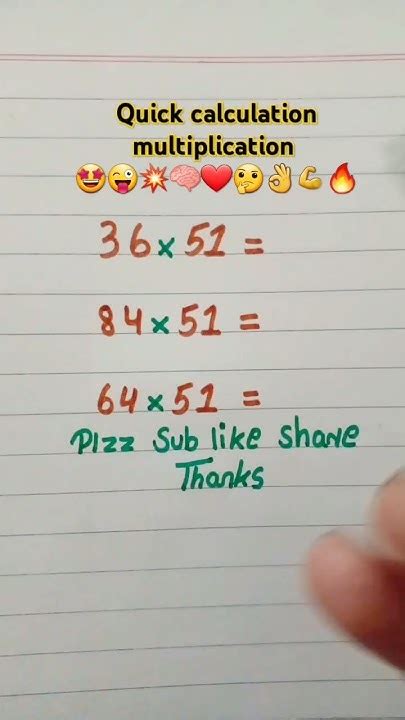 Quick calculation
multiplication
🤩😜💥🧠❤️🤔👌💪🔥
36×51=
84×51=
64×51=
Plzz Sub like share
Thanks